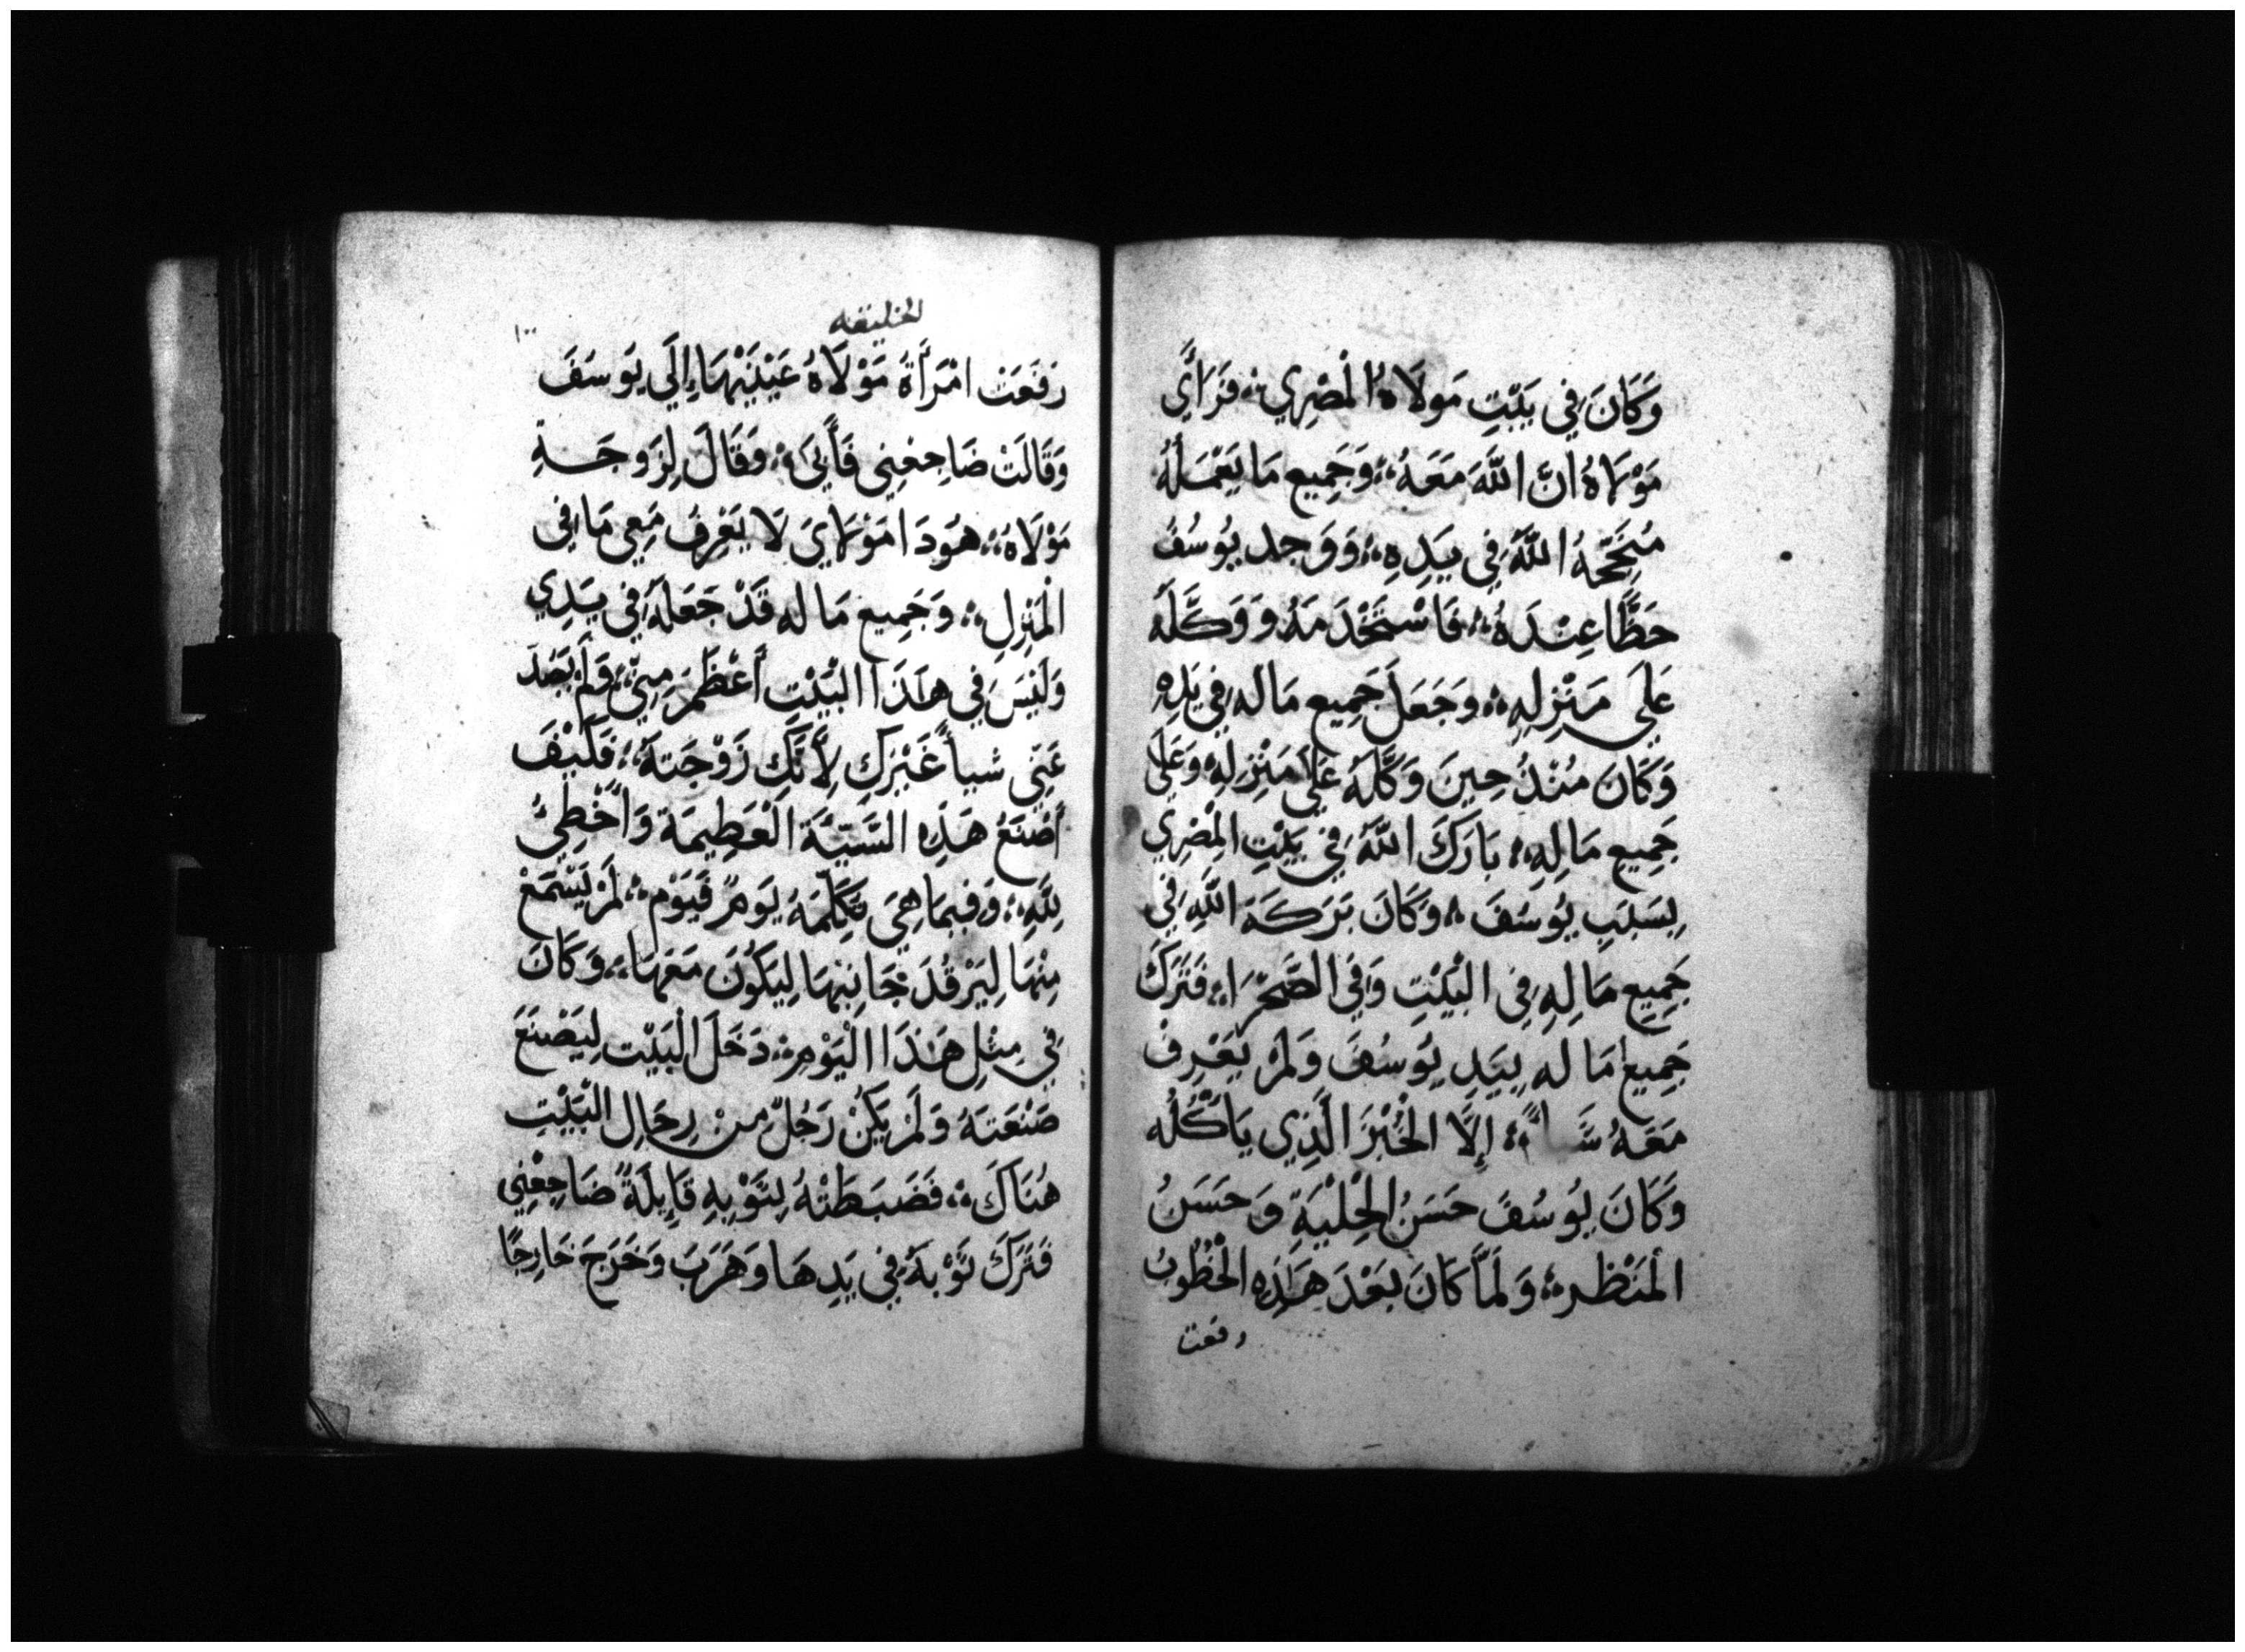 وَكَانَ فِي بَيْتِ مَولَاهُ الْمَصْرِي ؞ فَرَأَي
مَوْلَاهُ انَّ اللَّهَ مَعَهُ ؞ وَجَمِيع مَا يَعْمَلُهُ
مُنَجِّحُهُ اللَّهُ فِي يَدِهِ ؞ وَوَجد يُوسُفُ
حَظًّا عِنْدَهُ ؞ فَاسْتَخْدَمَهُ وَوَكَّلَهُ
عَلَي مَنْزِلِهِ ؞ وَجَعَلَ جَمِيع مَا له فِي يَدِهِ
وَكَانَ مُنْذُ حِينَ وَكَّلَهُ عَلَي مَنْزِلِهِ وَعَلَي
جَمِيعِ مَا لِهِ ؞ بَارَكَ اللَّهُ فِي بَيْتِ الْمِصْرِي
بِسَبَبِ يُوسُفَ ؞ وَكَانَ بَرَكَةَ اللَّهِ فِي
جَمِيعِ مَا لِهِ فِي الْبَيْتِ وَفِي الصَّحْرَاءِ ؞ فَتَرَكَ
جَمِيع مَا له بِيَدِ يُوسُفَ وَلَمْ يَعْرِفْ
مَعَهُ شَيأً ؞ إِلَّا الْخُبْزَ الَّذِي يَأكُلُه
وَكَانَ يُوسُفَ حَسَنُ الْحِلْيَةِ وَحَسَنُ
الْمَنْظر ؞ وَلَمَّا كَانَ بَعْدَ هَذِهِ الْخُطُوبُ
رفعت
الخليقه
١٠٠
رَفَعَتْ امْرَأَةُ مَوْلَاهُ عَيْنَيْهَا إِلَي يُوسُفَ
وَقَالَتْ ضَاجِعْنِي فَأَبَىَ ؞ وَقَالَ لِزَوجَةِ
مَوْلَاهُ ؞ هُوَدَا مَوْلَايَ لَا يَعْرِفُ مَعِي مَا فِي
الْمَنْزِلِ ؞ وَجَمِيع مَا له قَدْ جَعَلَهُ فِي يَدِي
وَلَيْسَ فِي هَذَا الْبَيْتِ أَعْظَمَ مِنِّي ؞ وَلَمْ يَصُدَّ
عَنِّي شيأً غَيْرَكِ لِأَنَّكِ زَوْجَتهُ ؞ فَكَيْفَ
أَصْنَعُ هَذِهِ السَّيِّئَة الْعَظِيمَة وَأُخْطِيُ
لِلَّهِ ؞ وَفِيمَا هِيَ تُكَلِّمَهُ يَومً فَيَوْم ؞ لَمْ يَسْمَعْ
مِنْهَا لِيَرْقُدَ جَانِبهَا لِيَكُونَ مَعَهَا ؞ وَكَانَ
فِي مِثْلِ هَذَا الْيَوْمِ ؞ دَخَلَ الْبَيْت لِيَصْنَعَ
صَنْعَتهُ وَلَمْ يَكُنْ رَجُلٌ مِنْ رِجَالِ الْبَيْتِ
هُنَاكَ ؞ فَضَبَطَتْهُ بِثَوْبِهِ قَايِلَةً ضَاجِعْنِي
فَتَرَكَ ثَوْبهُ فِي يَدِهَا وَهَرَبَ وَخَرَجَ خَارِجًا